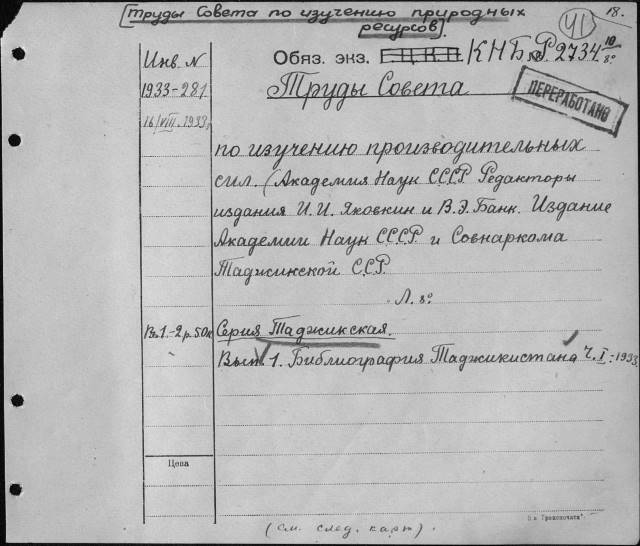 [Труды Совета по изучению природных
ресурсов].
41
18.
Инв. N
1933-281
16/VIII. 1933 г.
Обяз. экз. Г.Ц.К.П. КНБ Р2734 10/8°
Труды Совета
ПЕРЕРАБОТАНО
по изучению производительных
сил. (Академия Наук СССР. Редакторы
издания И.И. Яковкин и В.Э. Банк. Издание
Академии Наук СССР. и Совнаркома
Таджикской ССР.
Л. 8°
В.1.-2 р. 50 к
Серия Таджикская.
Вып. 1. Библиография Таджикистана Ч. I. 1933.
Цена
(см. след. карт).